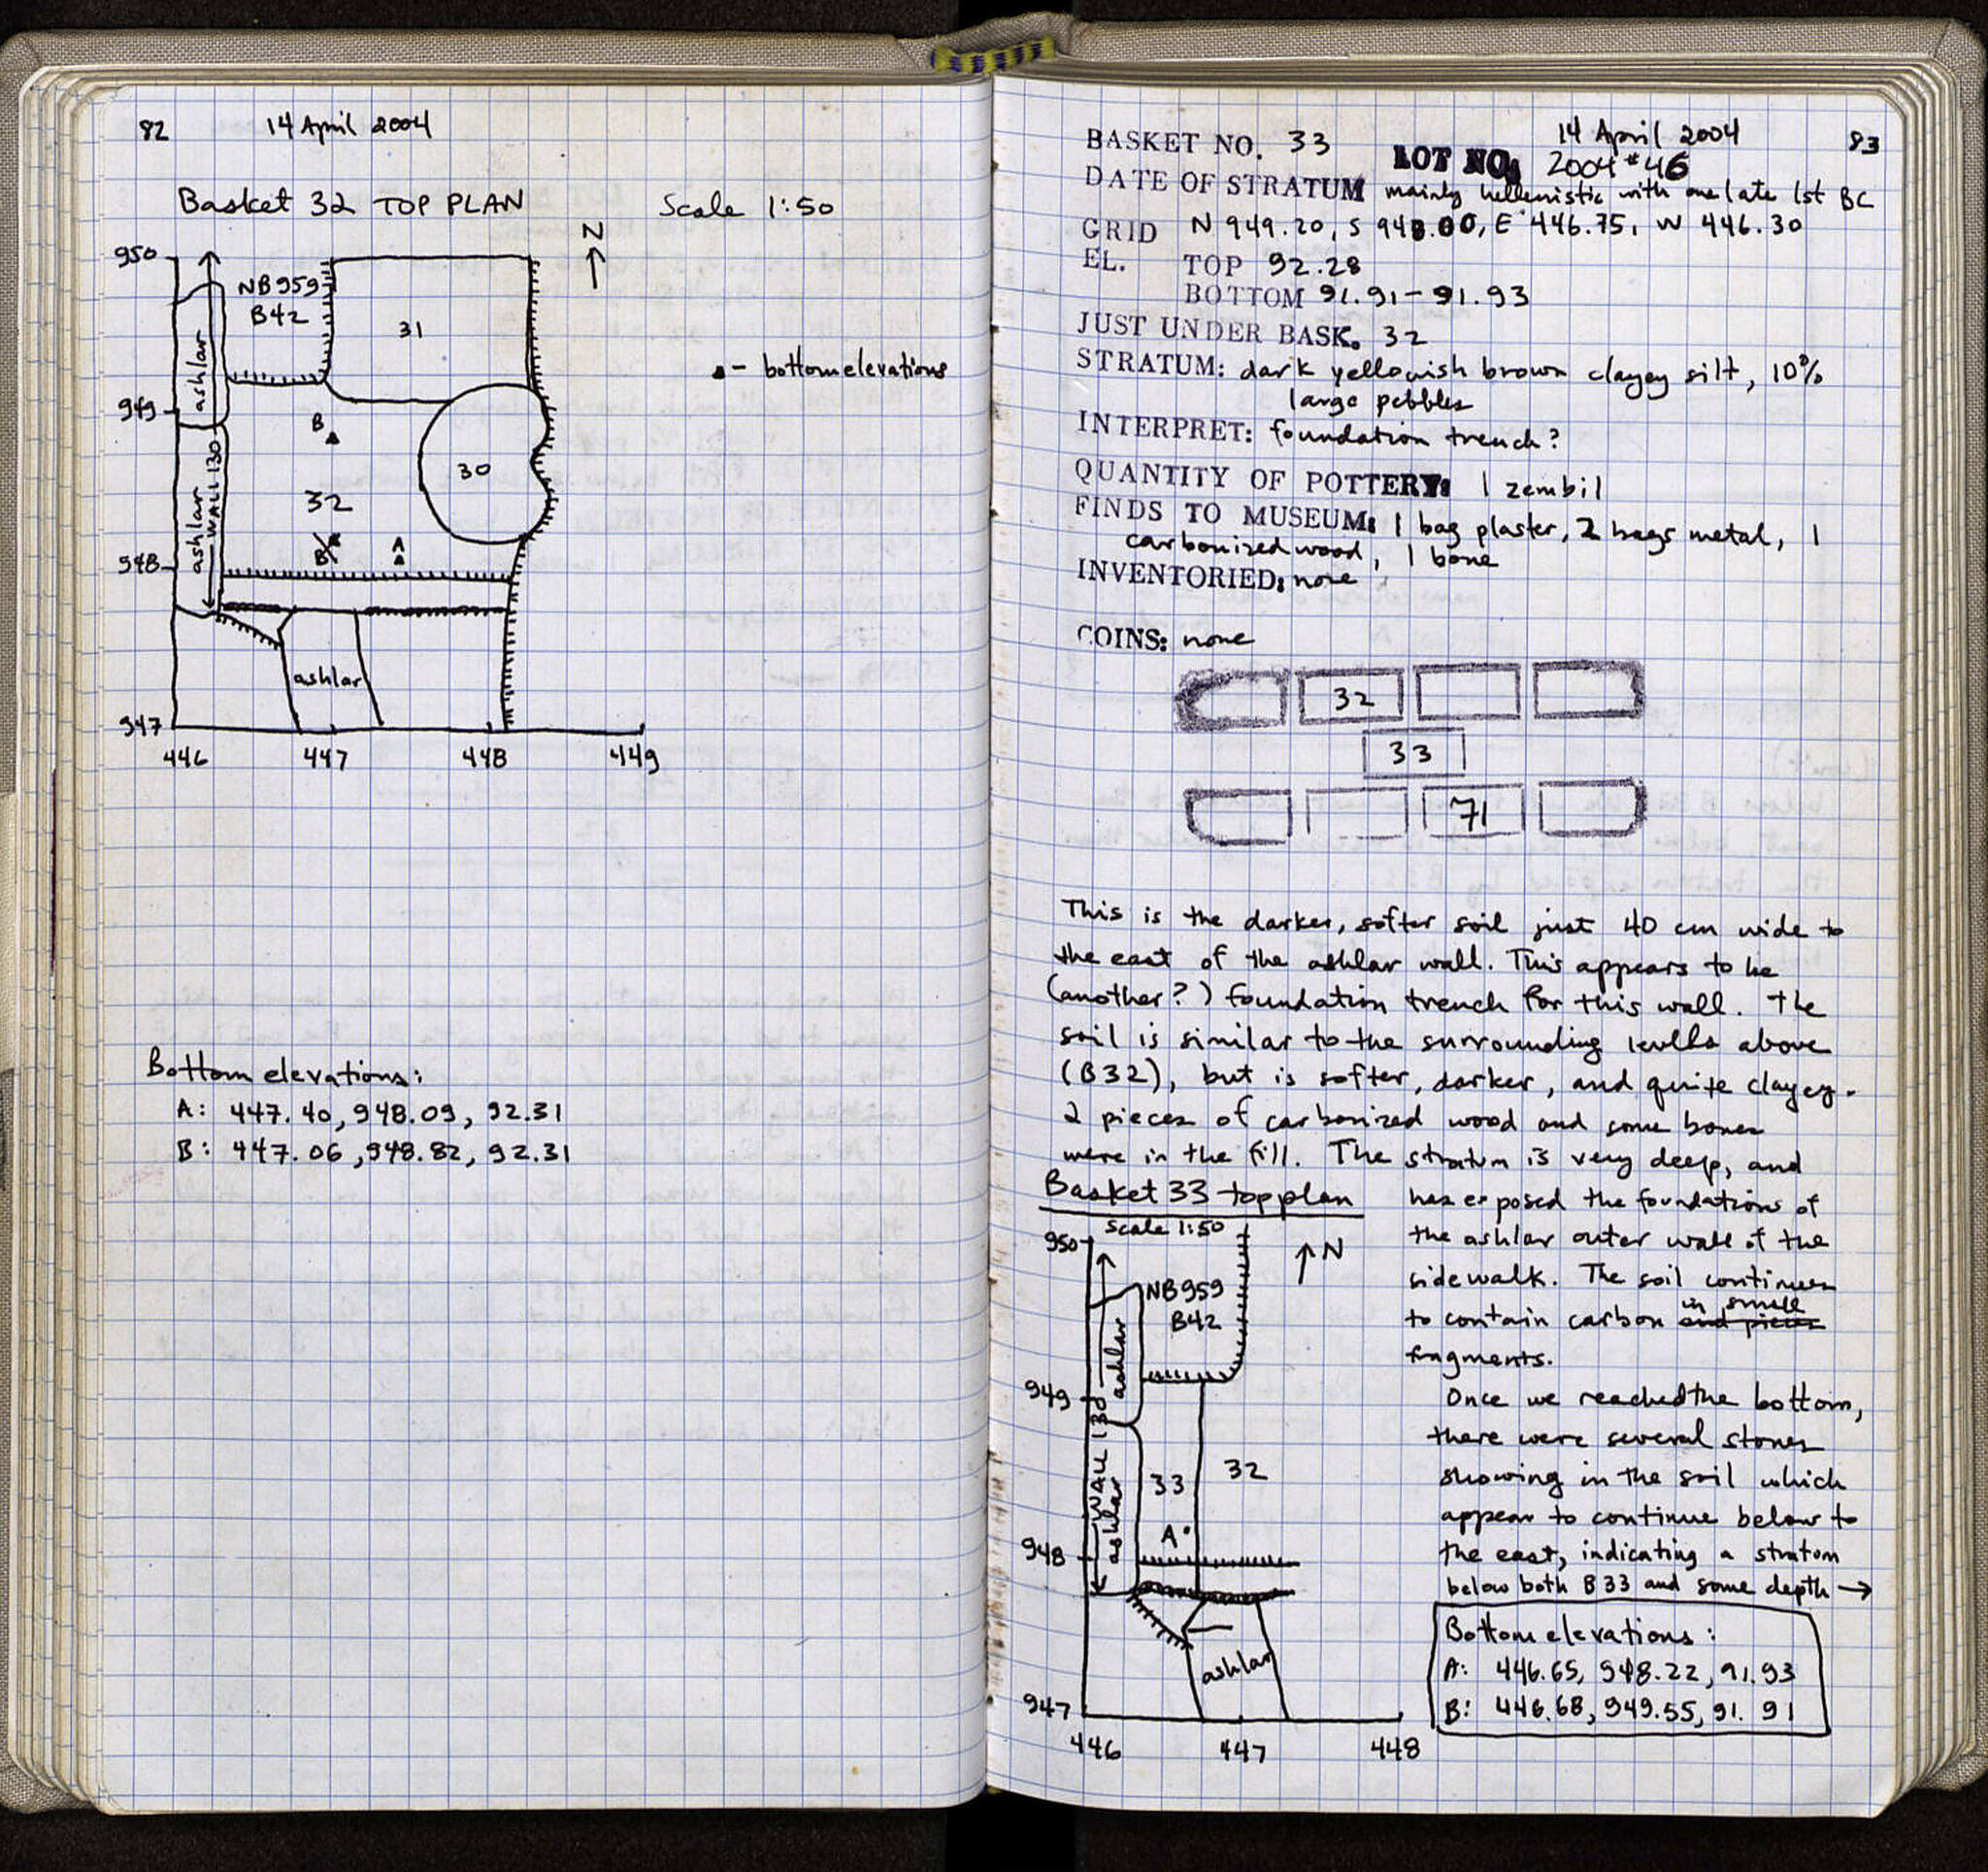 82 14 April 2004
Basket 32 TOP PLAN Scale 1:50
N
950
NB959
B42
31
ashlar
▲ - bottom elevations
949
B
30
WALL 130
ashlar
32
B
A
948
ashlar
947
446 447 448 449
Bottom elevations:
A: 447.40, 948.09, 92.31
B: 447.06, 948.82, 92.31
14 April 2004 83
BASKET NO. 33 LOT NO. 2004 #46
DATE OF STRATUM mainly hellenistic with one late 1st BC
GRID N 949.20, S 948.00, E 446.75, W 446.30
EL. TOP 92.28
BOTTOM 91.91-91.93
JUST UNDER BASK. 32
STRATUM: dark yellowish brown clayey silt, 10%
large pebbles
INTERPRET: foundation trench?
QUANTITY OF POTTERY: 1 zembil
FINDS TO MUSEUM: 1 bag plaster, 2 bags metal, 1
carbonized wood, 1 bone
INVENTORIED: none
COINS: none
32
33
71
This is the darker, softer soil just 40 cm wide to
the east of the ashlar wall. This appears to be
(another?) foundation trench for this wall. The
soil is similar to the surrounding levels above
(B32), but is softer, darker, and quite clayey.
2 pieces of carbonized wood and some bones
were in the fill. The stratum is very deep, and
has exposed the foundations of
the ashlar outer wall of the
sidewalk. The soil continues
to contain carbon and pieces in small
fragments.
Once we reached the bottom,
there were several stones
showing in the soil which
appear to continue below to
the east, indicating a stratum
below both B33 and some depth →
Basket 33 top plan
Scale 1:50
950
N
NB959
B42
ashlar
949
WALL 130
ashlar
33
32
A
948
ashlar
947
446 447 448
Bottom elevations:
A: 446.65, 948.22, 91.93
B: 446.68, 949.55, 91.91